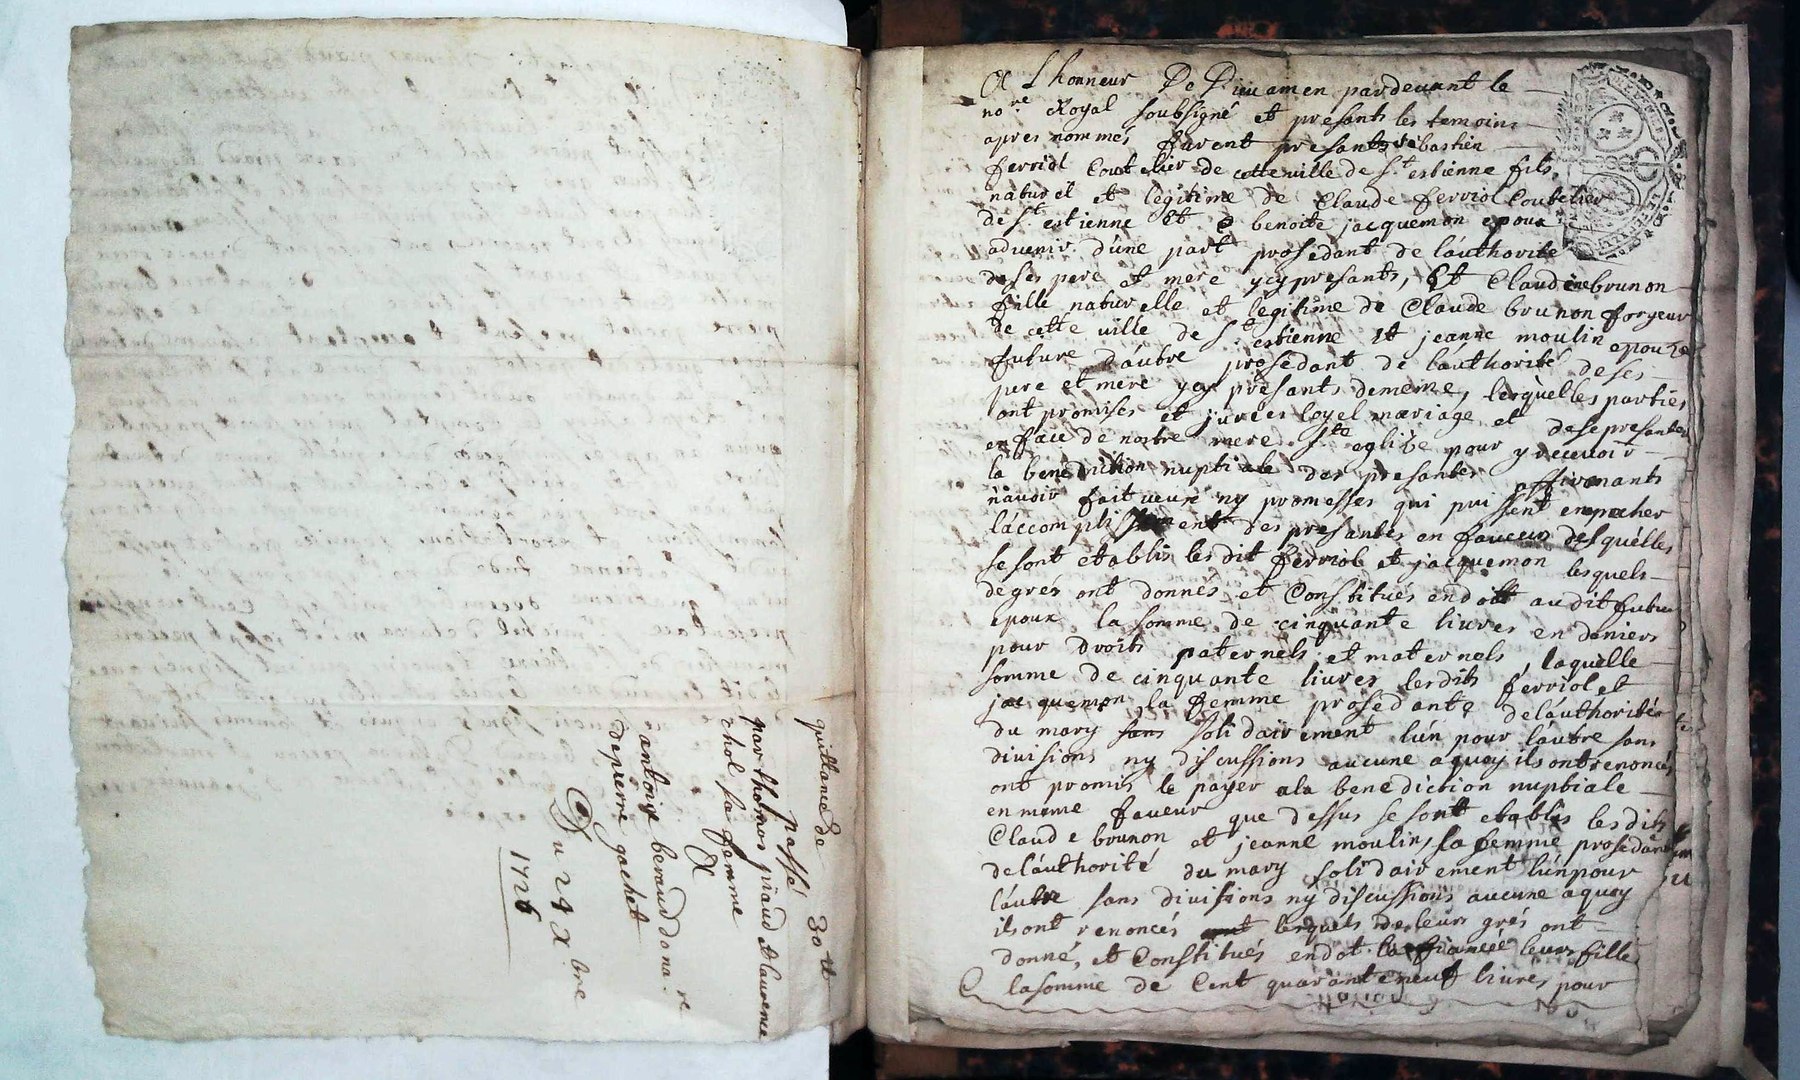 quittance de 30 tt
passé
par thomas piaud et laurence
chol sa femme
A
antoine beraud dona.re
de pierre gachet
Du 24 Xbre
1726
A L'honneur De Dieu amen pardeuant le
no.re Royal soubsigné et presents les temoins
apres nommés furent presants sebastien
ferriol Coutelier de cette ville de St estienne fils
naturel et legitime de Claude ferriol Coutelier
de St estienne Et benoite jacquemon epoux
aduenir d'une part prosedant de l'authorité
de ses pere et mere ycy presants, Et Claudine brunon
fille naturelle et legitime de Claude brunon forgeur
de cette ville de St estienne et jeanne moulin epouze
future d'autre prosedant de l'authorité de ses
pere et mere ycy presants dememe, lesquelles parties
ont promises et jurées loyel mariage et de se presenter
en face de nostre mere Ste eglize pour y receuoir
la benediction nuptiale des presantes affirmants
n'auoir fait ueux ny promesses qui puissent enpecher
l'accomplissement des presantes en faueur desquelles
se sont etablis lesdit ferriol et jacquemon lesquels
degrés ont donnés et Constitués en dott audit futur
epoux la somme de cinquante liures en deniers
pour droits paternels et maternels, laquelle
somme de cinquante liures lesdits ferriol et
jacquemon la femme prosedante de l'authorité
du mary sans solidairement l'un pour l'autre sans
diuisions ny discussions aucune a quoy ils ont renoncés
ont promis le payer a la benediction nuptiale
en meme faueur que dessus se sont etablis lesdits
Claude brunon et jeanne moulins sa femme prosedant
de l'authorité du mary solidairement l'un pour
l'autre sans diuisions ny discussions aucune a quoy
ils ont renoncés lesquels de leurs grés ont
donné, et Constitués en dot leur fille
la somme de Cent quarante neuf liures pour